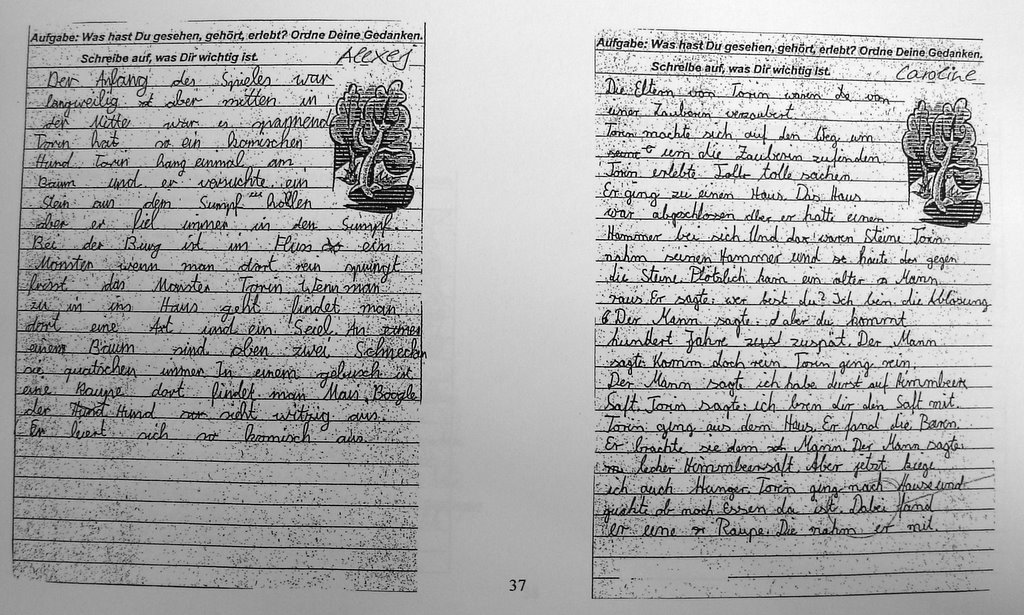 Aufgabe: Was hast Du gesehen, gehört, erlebt? Ordne Deine Gedanken.
Schreibe auf, was Dir wichtig ist.
Alexej
Der Anfang des Spieles war
langweilig aber mitten in
der Mitte war es spannend
Torin hat so ein komischen
Hund Torin hang einmal am
Baum und er versuchte ein
Stein aus dem Sumpf zu hollen
aber er fiel immer in den Sumpf.
Bei der Burg ist im Fluss ein
Monster wenn man dort rein springt
frisst das Monster Torin Wenn man
zu in ins Haus geht findet man
dort eine Axt und ein Seiel. An
einem Baum sind oben zwei Schnecken
sie quatschen immer In einem gebusch ist
eine Raupe dort findet man Man Boogle
der Hund sieht witzig aus.
Er hert sich so komisch an.
Aufgabe: Was hast Du gesehen, gehört, erlebt? Ordne Deine Gedanken.
Schreibe auf, was Dir wichtig ist.
Caroline
Die Eltern von Torin waren von
einer Zauberin verzaubert
Torin machte sich auf den Weg um
um die Zauberin zufinden.
Torin erlebte tolle sachen
Er ging zu einen Haus. Das Haus
war abgeschlossen aber er hatte einen
Hammer bei sich Und da waren Steine Torin
nahm seinen Hammer und haute da gegen
die Steine Plötzlich kam ein alter Mann
raus. Er sagte: wer bist du? Ich bin die Ablösung
Der Mann sagte: aber du kommt
hundert Jahre zuspät. Der Mann
sagte Komm doch rein Torin ging rein.
Der Mann sagte ich habe durst auf Himmbeer
Saft. Torin sagte: ich bren dir den Saft mit.
Torin ging aus dem Haus. Er fand die Baren.
Er brachte sie dem Mann. Der Mann sagte:
lecker Himmbeersaft. Aber jetzt kiege
ich auch Hunger. Torin ging nach Hause und
guckte ob noch Essen da ist. Dabei fand
er eine Raupe. Die nahm er mit
37